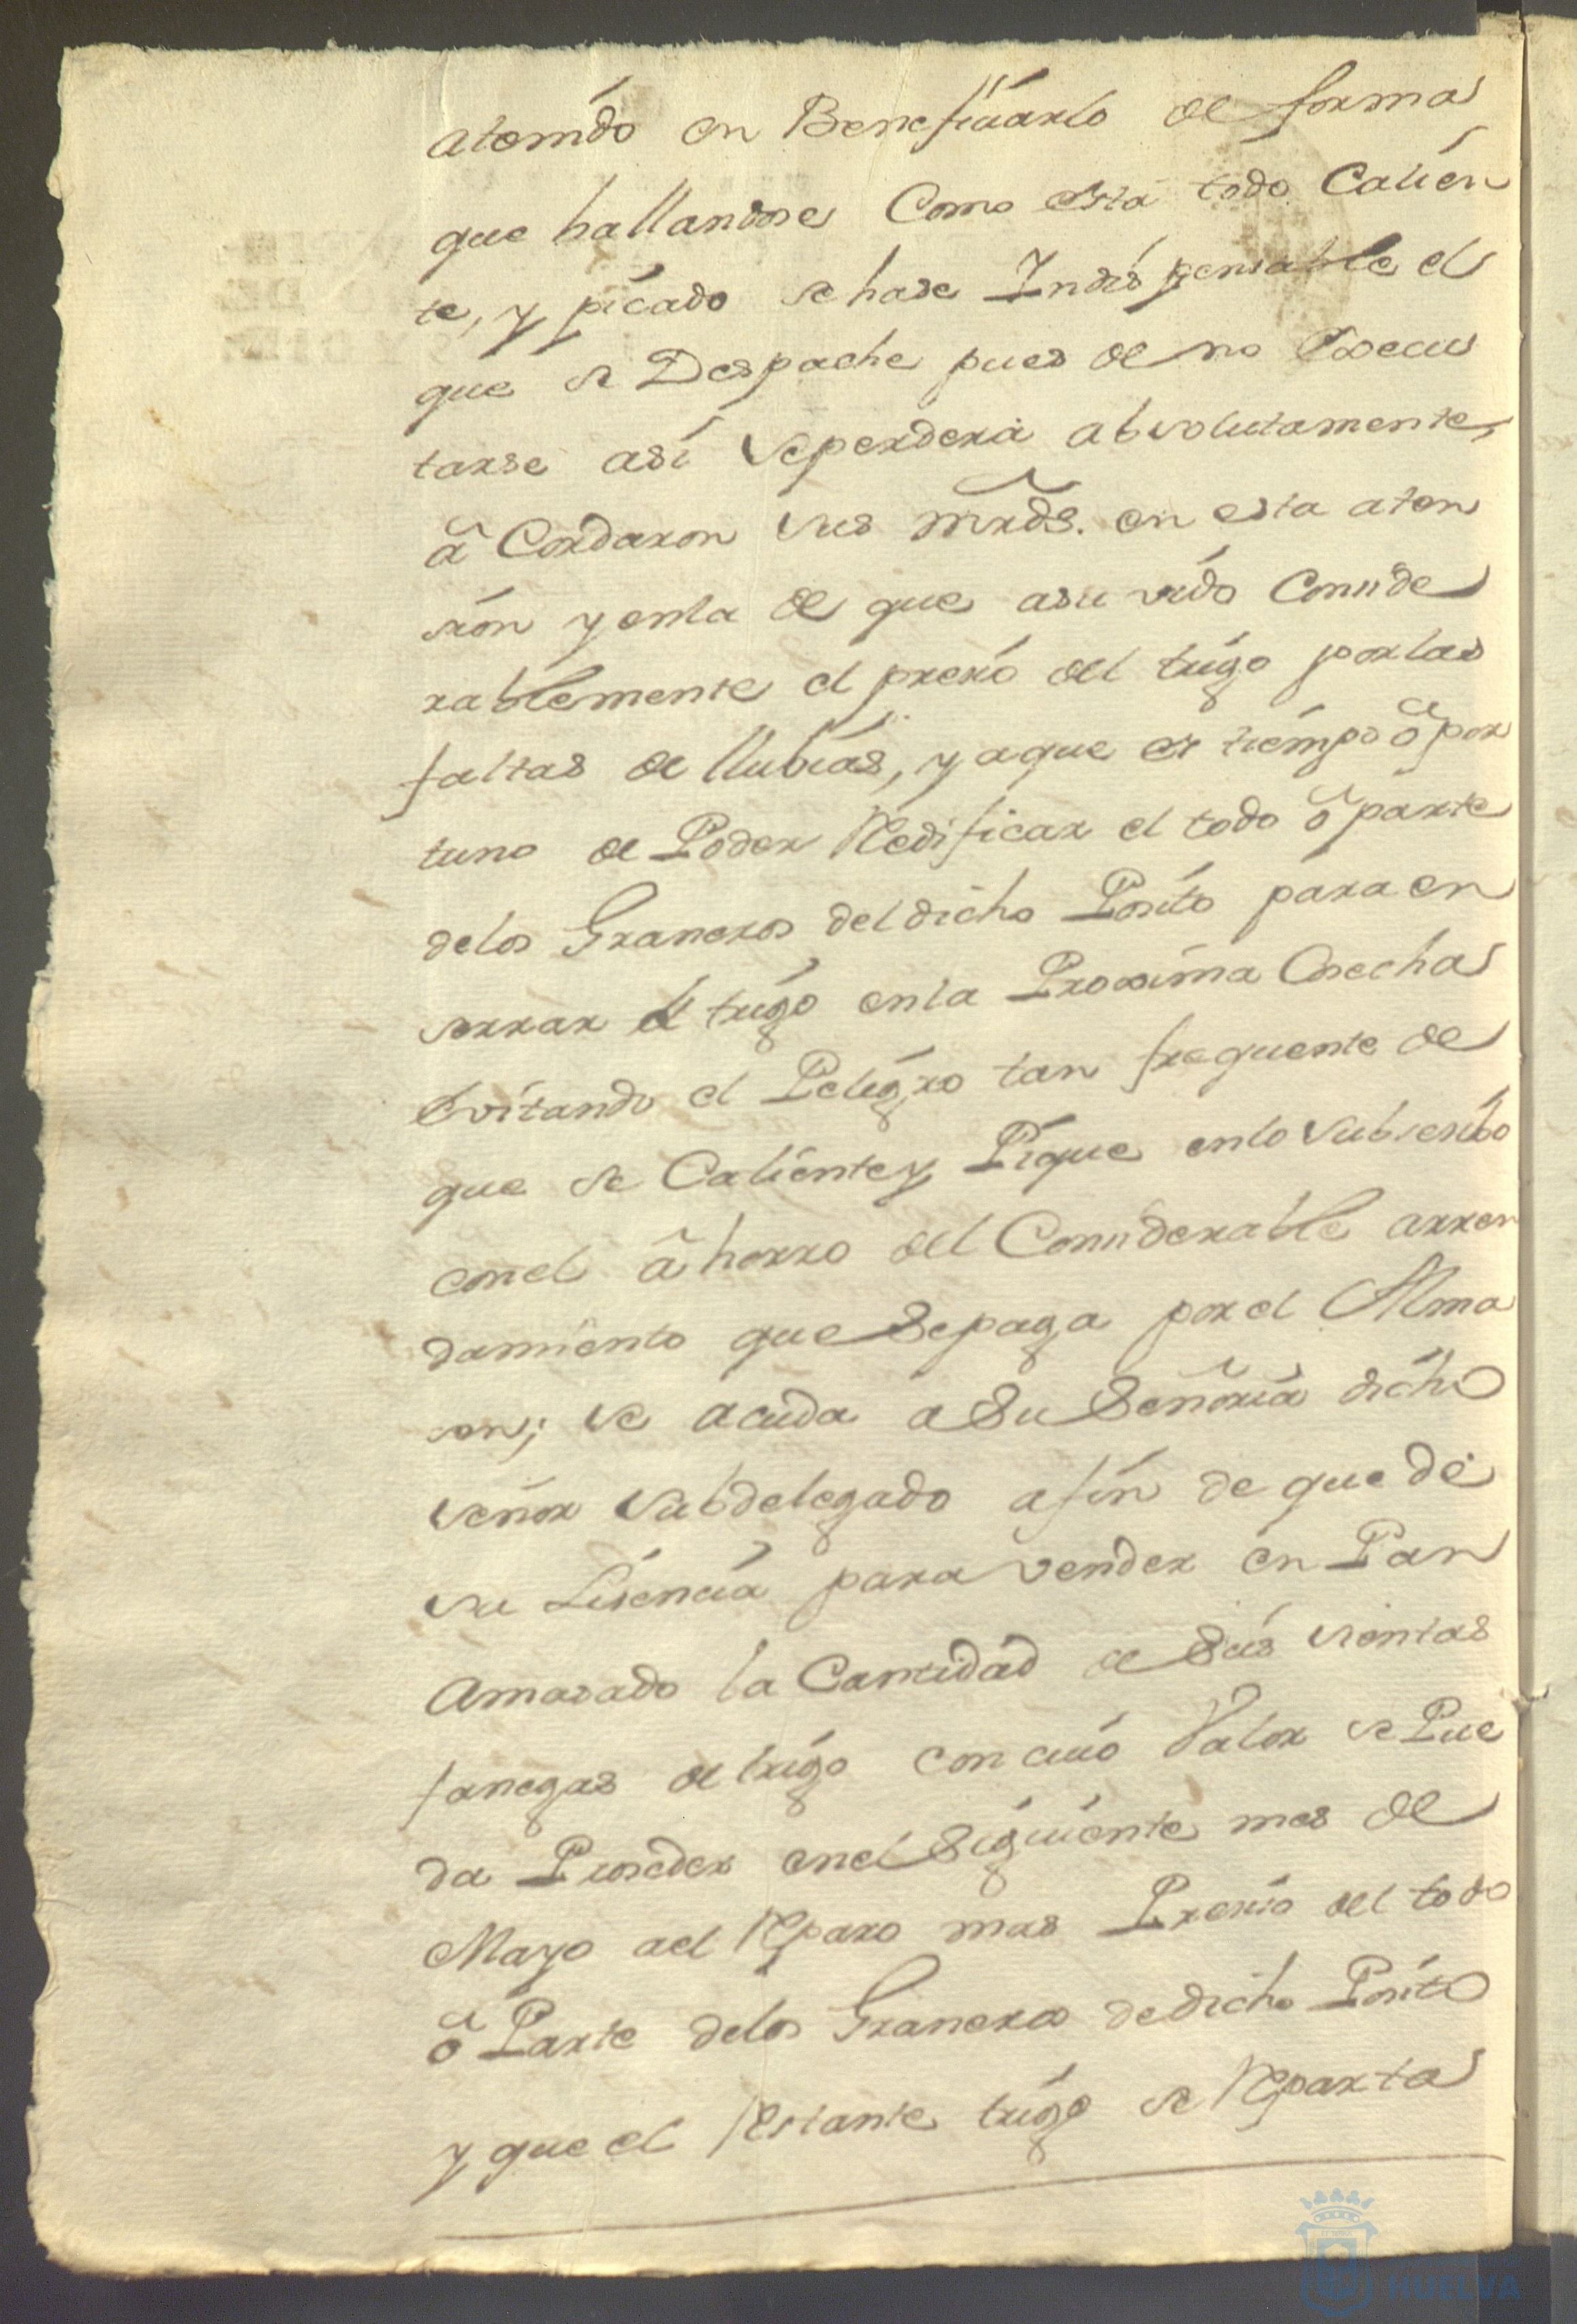 atenido en Benefisiarlo de forma
que hallandose Como està todo Calien
te, y picado se hase Indispensable el
que se Despache pues de no Execu
tarse así seperderá absolutamente,
â Cordaron sus mrds. en esta aten
sion y enla de que asuvido Conside
rablemente el presio del trigo porlas
faltas de llubias, y aque es tiempo ôpor
tuno de Poder Redificar el todo ô parte
delos Graneros deldicho Posito para en
serrar el trigo enla Proxsima Cosecha
Evitando el Peligro tan frequente de
que se Caliente y Pique enlo Subsesibo
conel âhorro del Considerable arren
damiento que Sepaga por el Alma
sen; se acuda a Su Señoria dicho
señor Subdelegado afin de que dè
su Lisencia para vender en Pan
Amasado la Cantidad de Seis sientas
fanegas de trigo con cuio Valor se Pue
da Proseder enel Siguiente mes de
Mayo ael Reparo mas Presiso del todo
ô Parte delos Graneros dedicho Posito
y que el Restante trigo se Reparta
HUELVA